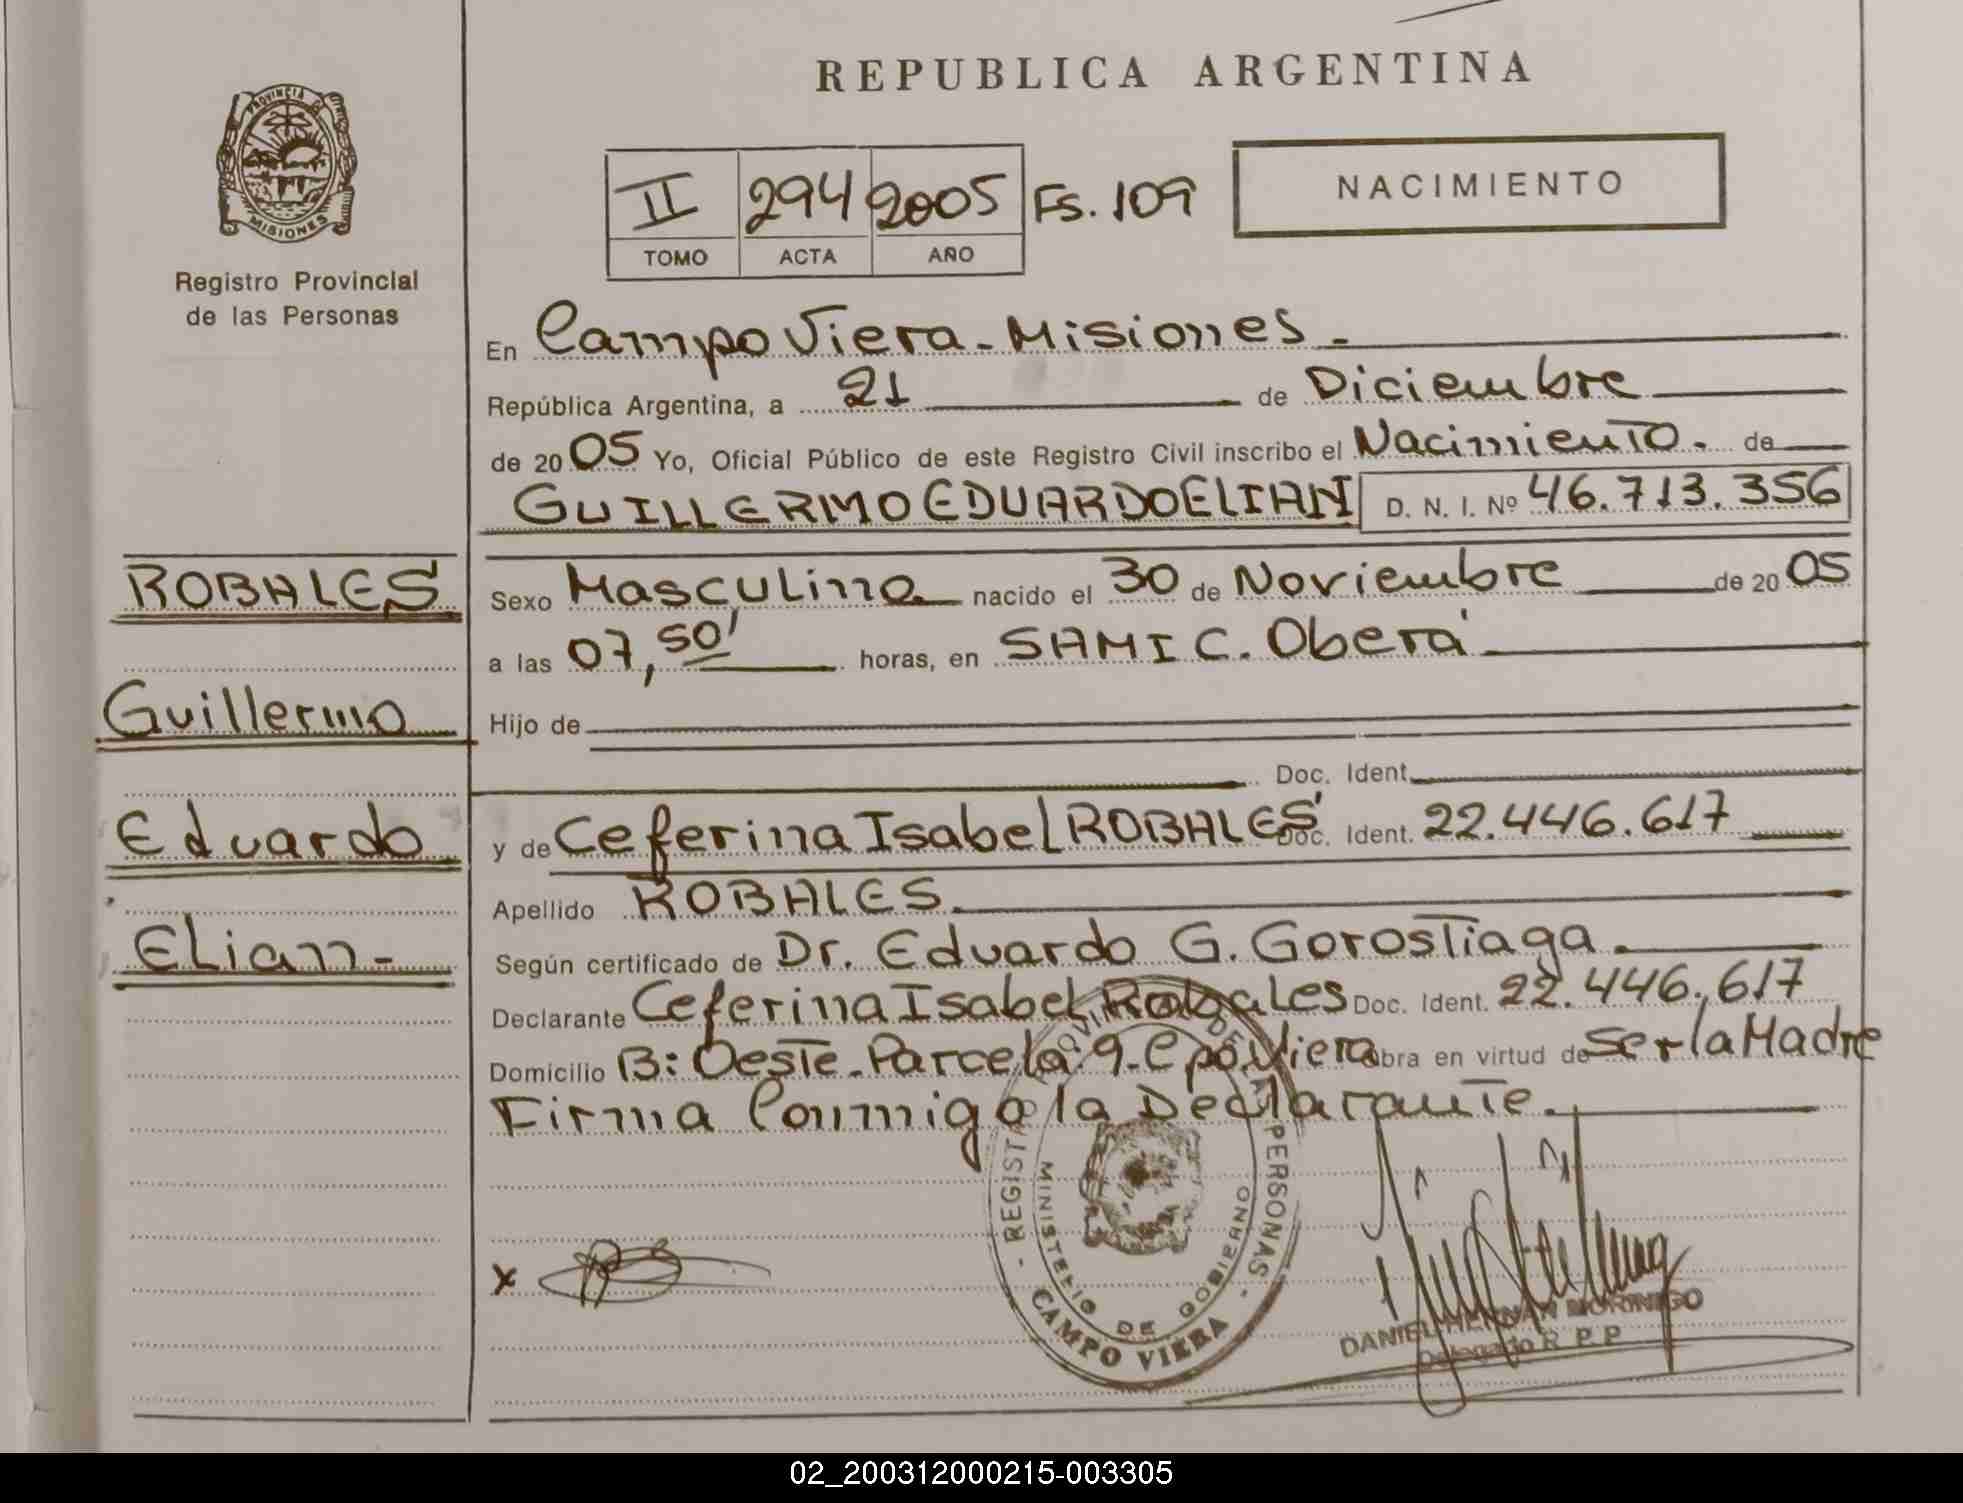 REPUBLICA ARGENTINA
PROVINCIA DE
MISIONES
Registro Provincial
de las Personas
II 294 2005 Fs. 109
TOMO ACTA AÑO
NACIMIENTO
En Campo Viera - Misiones.
República Argentina, a 21 de Diciembre
de 2005 Yo, Oficial Público de este Registro Civil inscribo el Nacimiento. de
GUILLERMO EDUARDO ELIAN D. N. I. Nº 46.713.356
ROBALES
Guillermo
Eduardo
Elian-
Sexo Masculino nacido el 30 de Noviembre de 2005
a las 07,50' horas, en SAMIC. Oberá
Hijo de
Doc. Ident.
y de Ceferina Isabel ROBALES Doc. Ident. 22.446.617
Apellido ROBALES.
Según certificado de Dr. Eduardo G. Gorostiaga.
Declarante Ceferina Isabel Robales Doc. Ident. 22.446.617
Domicilio B: Oeste-Parcela:9-Cpo.Viera obra en virtud de Ser la Madre
Firma Conmigo la Declarante.
REGISTRO PROVINCIAL DE LAS PERSONAS
MINISTERIO DE GOBIERNO
CAMPO VIERA
x
DANIEL HERNAN MORINIGO
Delegado R.P.P
02_200312000215-003305